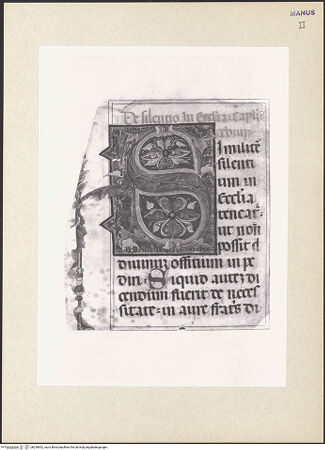 MANUS
II
De silentio in ecclia. Capl̃m
xxviii.
Similitẽ
silenti
um in
Ecclia
teneat̃
ut non
possit d
diuinuʒ officium in pe
diri. Siquid auteʒ di
cendum fuerit de neces
sitate in aure frat̃s di